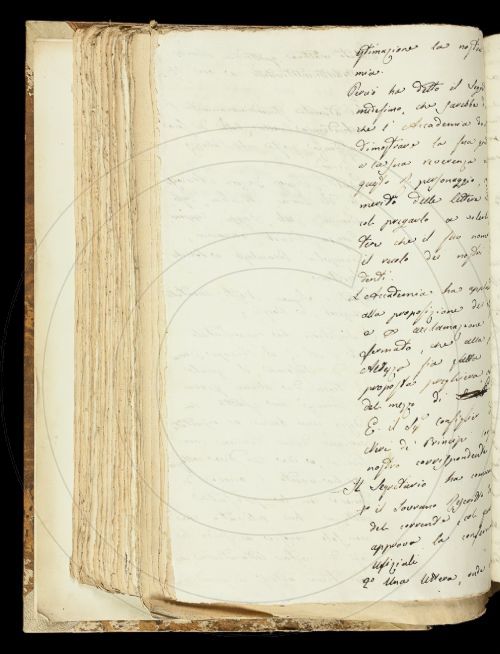 estimazione la nostra
mia.
Perciò ha detto il Segr
medesimo, che sarebbe
che l'Accademia do
dimostrare la sua
e la sua reverenza
questo personaggio
merito delle lettere
col pregarlo a volere
tere che il suo nome
il ruolo dei nostri
denti.
L'Accademia ha appl
alla proposizione del
e acclamazione
fermato, che alla
Altezza sia fatta
proposta preghiera
del mezzo di
E il Sig. Consiglio
dire di Principe
nostro corrispondente
Il Segretario ha comu
il Sovrano Rescritto
del corrente col
approva la confer
Ufiziale
2o Una lettera, onde